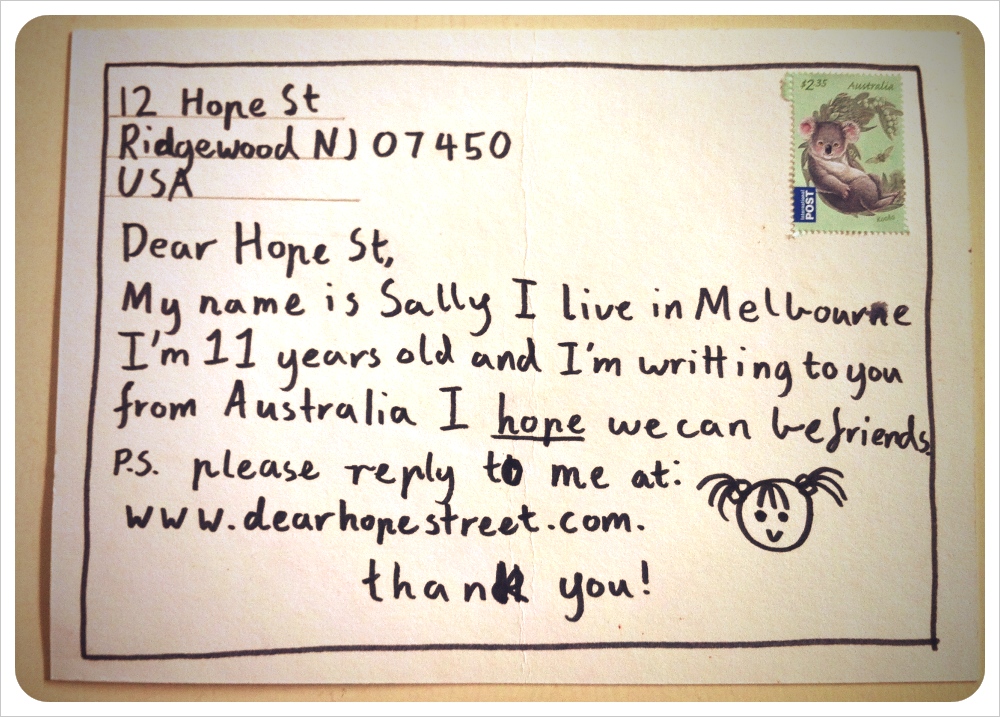 12 Hope St
Ridgewood NJ 07450
USA
$2.35 Australia
International
POST
Koala
Dear Hope St,
My name is Sally I live in Melbourne
I'm 11 years old and I'm writting to you
from Australia I hope we can be friends.
P.S. please reply to me at:
www.dearhopestreet.com.
thank you!